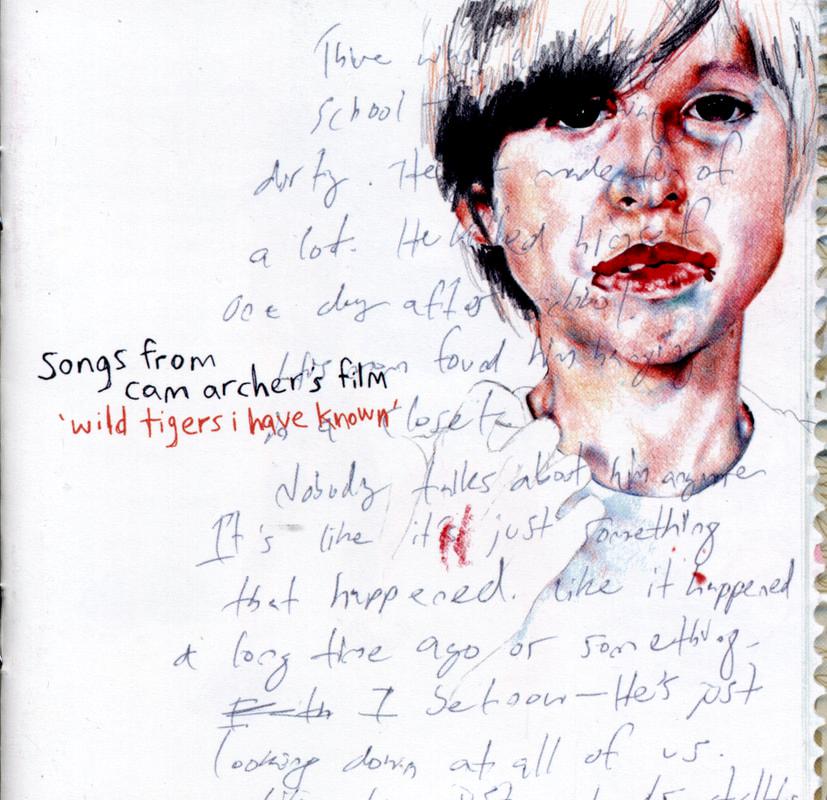 School
dirty. He made fun of
a lot. He killed himself
one day after school.
His mom found him hanging
songs from
cam archer's film
'wild tigers i have known'
closet
Nobody talks about him anymore
It's like it just something
that happened. Like it happened
a long time ago or something.
I He's just
looking down at all of us.